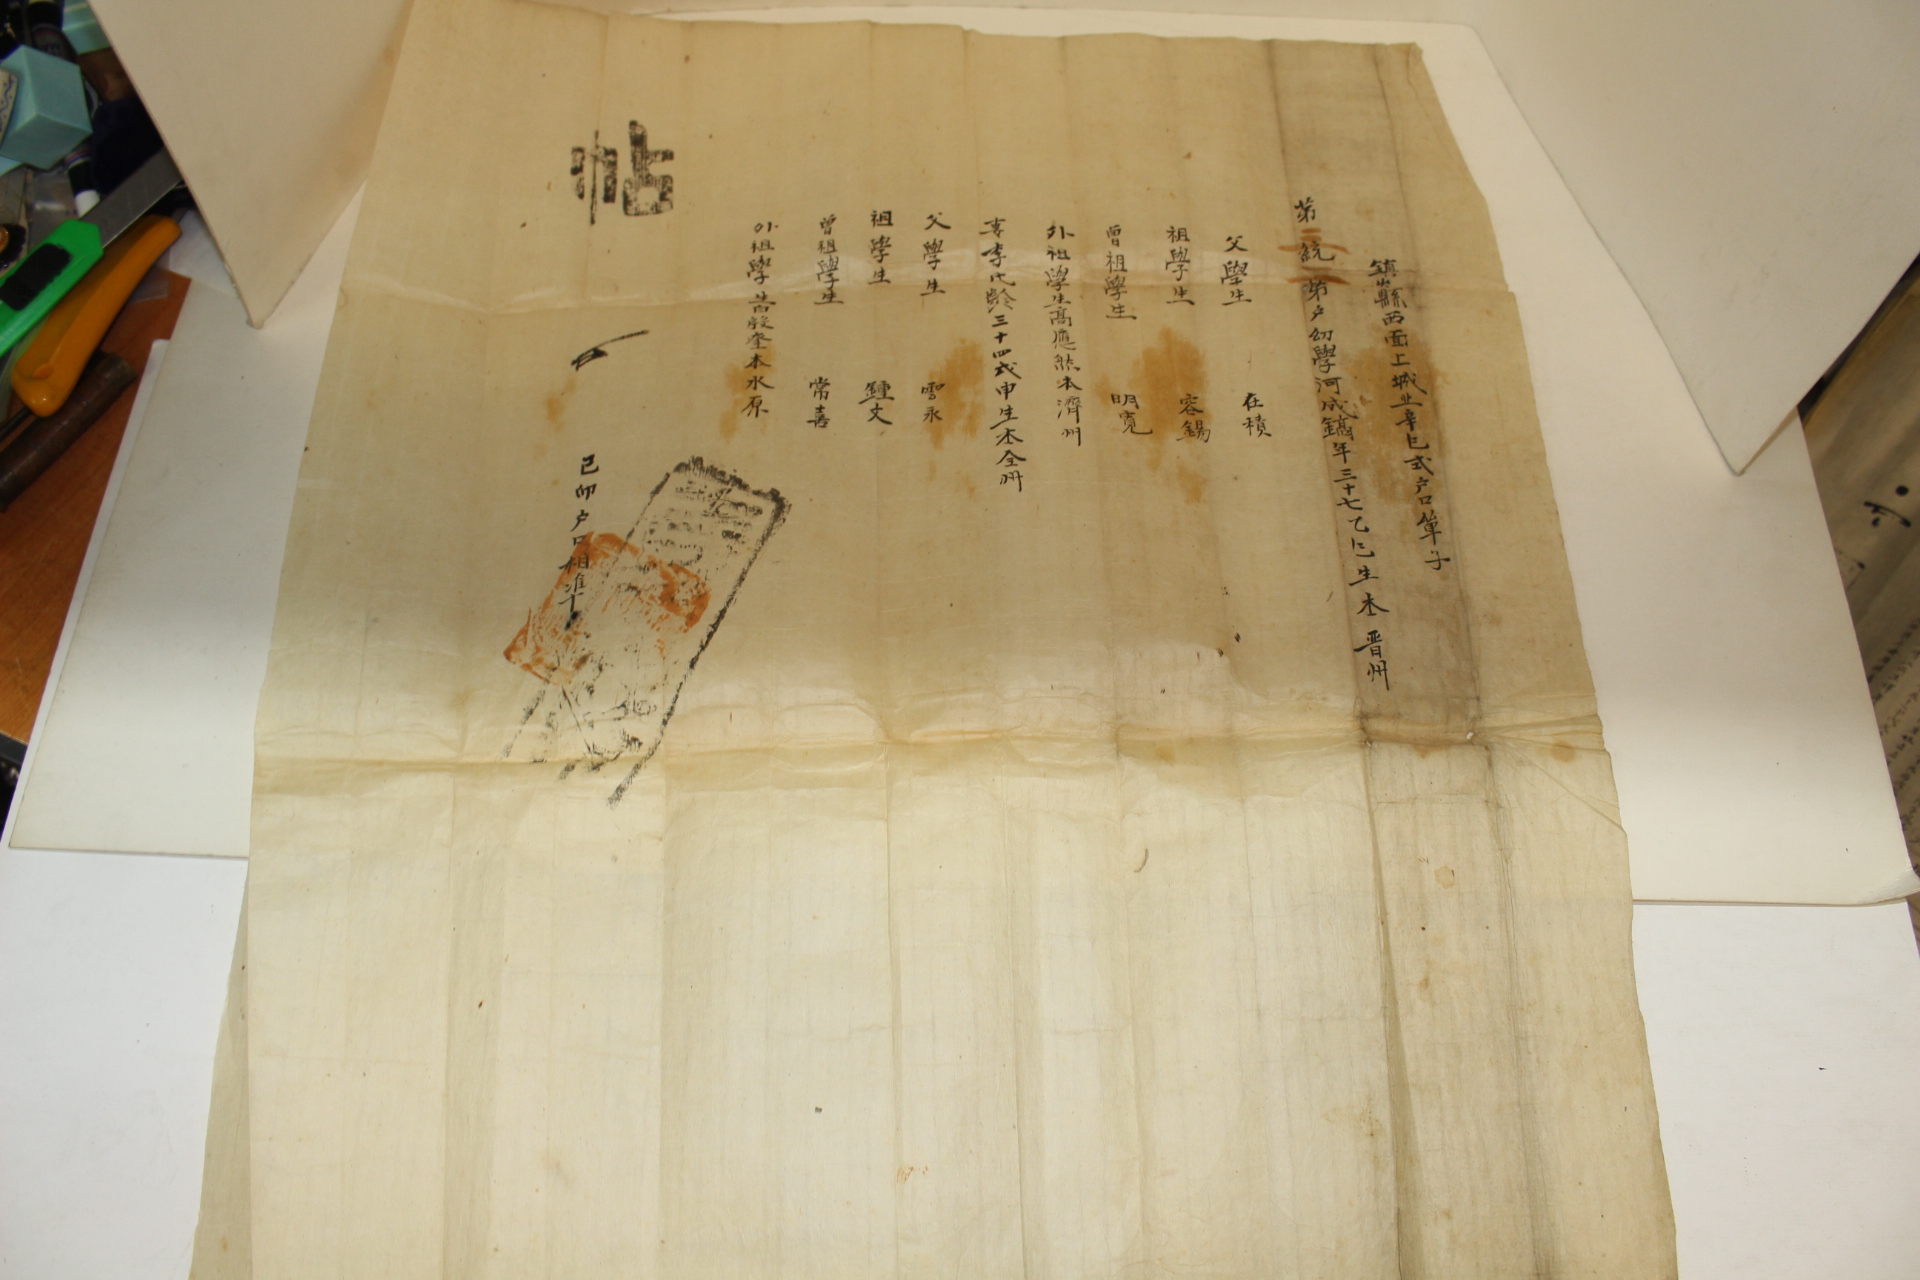 鎭岑縣西面上城北辛巳式戶口單子
第二統一第戶幼學河成鎬年三十七乙巳生本晋州
父學生 在績
祖學生 容錫
曾祖學生 明寬
外祖學生高應 本濟州
妻李氏齡三十四戊申生本全州
父學生 雲永
祖學生 鍾文
曾祖學生 常喜
外祖學生 奎本水原
帖
己卯戶口相準